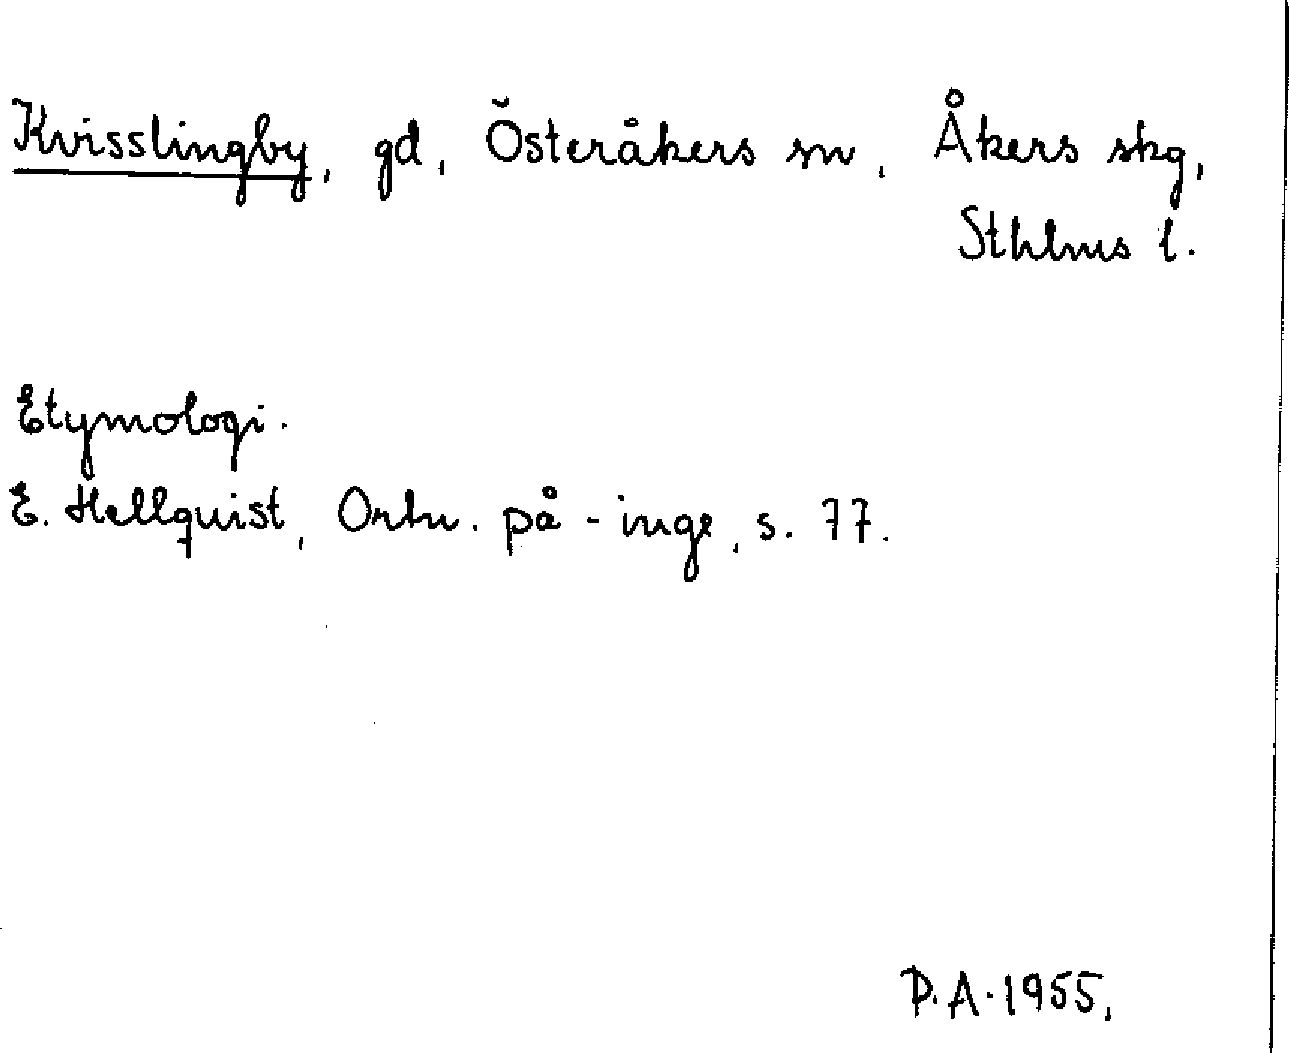 Kvisslingby, gd, Österåkers sn, Åkers skg,
Sthlms l.
Etymologi.
E. Hellquist, Ortn. på -inge, s. 77.
P.A. 1955.